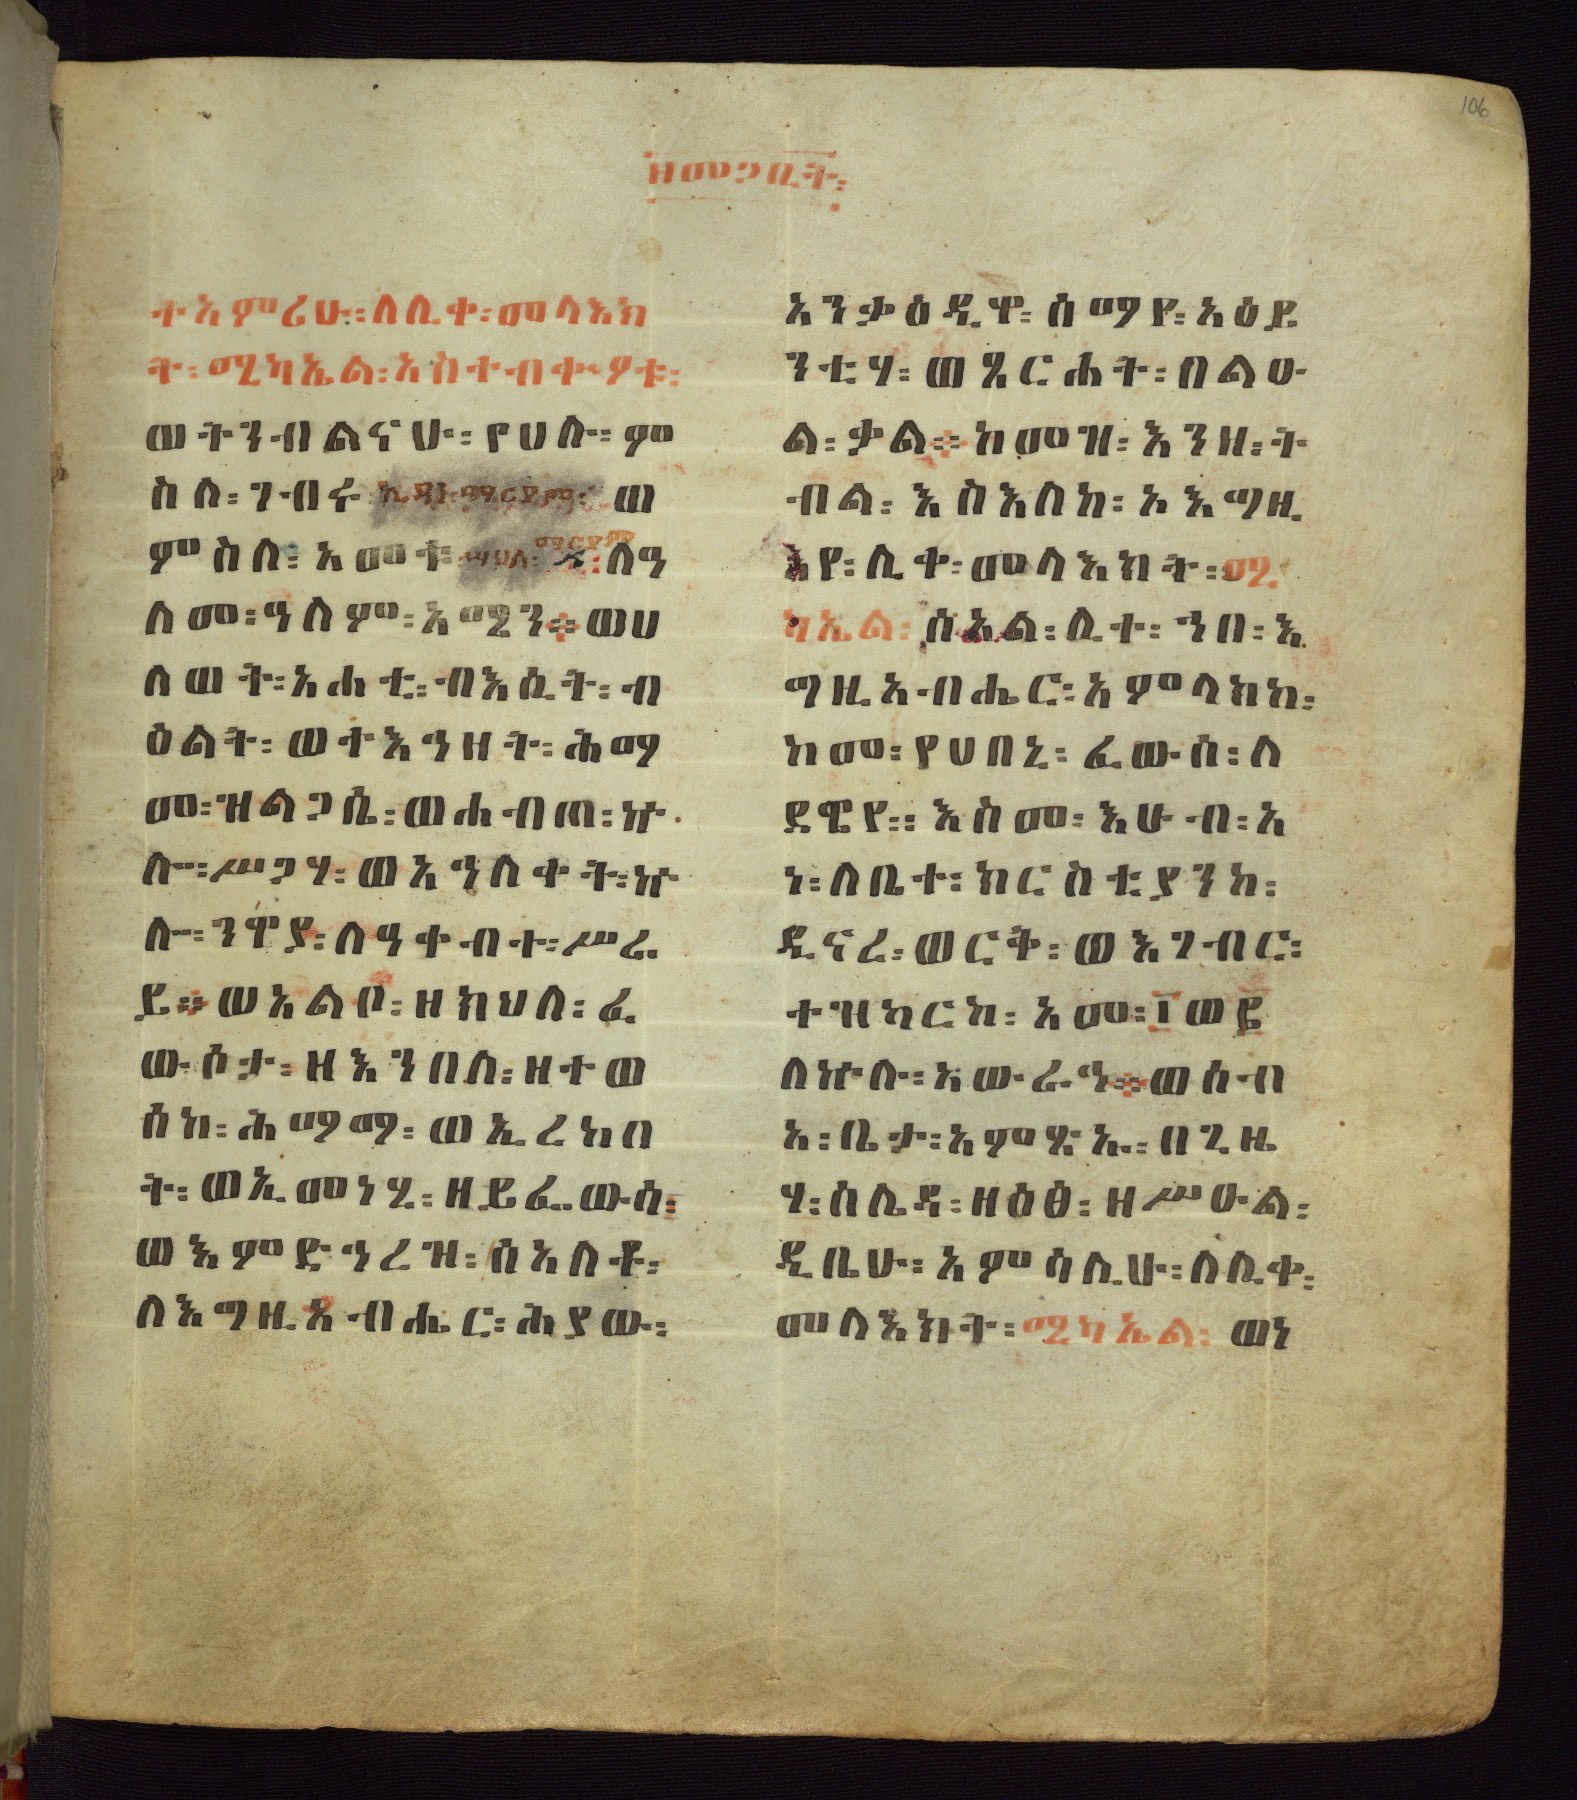 106
ዘመጋቢት፡
ተአምሪሁ፡ ለሊቀ፡ መላእክ
ት፡ ሚካኤል፡ አስተብቍዖቱ፡
ወትንብልናሁ፡ የሀሉ፡ ም
ስለ፡ ገብሩ ወ
ምስለ፡ አመቱ ለዓ
ለመ፡ ዓለም፡ አሜን። ወሀ
ለወት፡ አሐቲ፡ ብእሲት፡ ብ
ዕልት፡ ወተእኅዘት፡ ሕማ
መ፡ ዝልጋሴ፡ ወሐብጠ፡ ኵ
ሉ፡ ሥጋሃ፡ ወአኅለቀት፡ ኵ
ሉ፡ ንዋያ፡ ለዓቀብተ፡ ሥራ
ይ። ወአልቦ፡ ዘክህለ፡ ፈ
ውሶታ፡ ዘእንበለ፡ ዘተወ
ሰከ፡ ሕማማ፡ ወኢረክበ
ት፡ ወኢመነሂ፡ ዘይፈውሳ፡
ወእምድኅረዝ፡ ሰአለቶ፡
ለእግዚአብሔር፡ ሕያው፡
አንቃዕዲዋ፡ ሰማየ፡ አዕይ
ንቲሃ፡ ወጸርሐት፡ በልሁ
ል፡ ቃል። ከመዝ፡ እንዘ፡ ት
ብል፡ እስእለከ፡ ኦእግዚ
እየ፡ ሊቀ፡ መላእክት፡ ሚ
ካኤል፡ ሰአል፡ ሊተ፡ ኀበ፡ እ
ግዚአብሔር፡ አምላክከ፡
ከመ፡ የሀበኒ፡ ፈውሰ፡ ለ
ደዌየ፡ እስመ፡ እሁብ፡ አ
ነ፡ ለቤተ፡ ክርስቲያንከ፡
ዲናረ፡ ወርቅ፡ ወእገብር፡
ተዝካርከ፡ አመ፡ ፲ወ፪
ለኵሉ፡ አውራኅ። ወሰብ
አ፡ ቤታ፡ አምጽኡ፡ በጊዜ
ሃ፡ ሰሌዳ፡ ዘዕፅ፡ ዘሥዑል፡
ዲቤሁ፡ አምሳሊሁ፡ ለሊቀ፡
መለእክት፡ ሚካኤል፡ ወነ